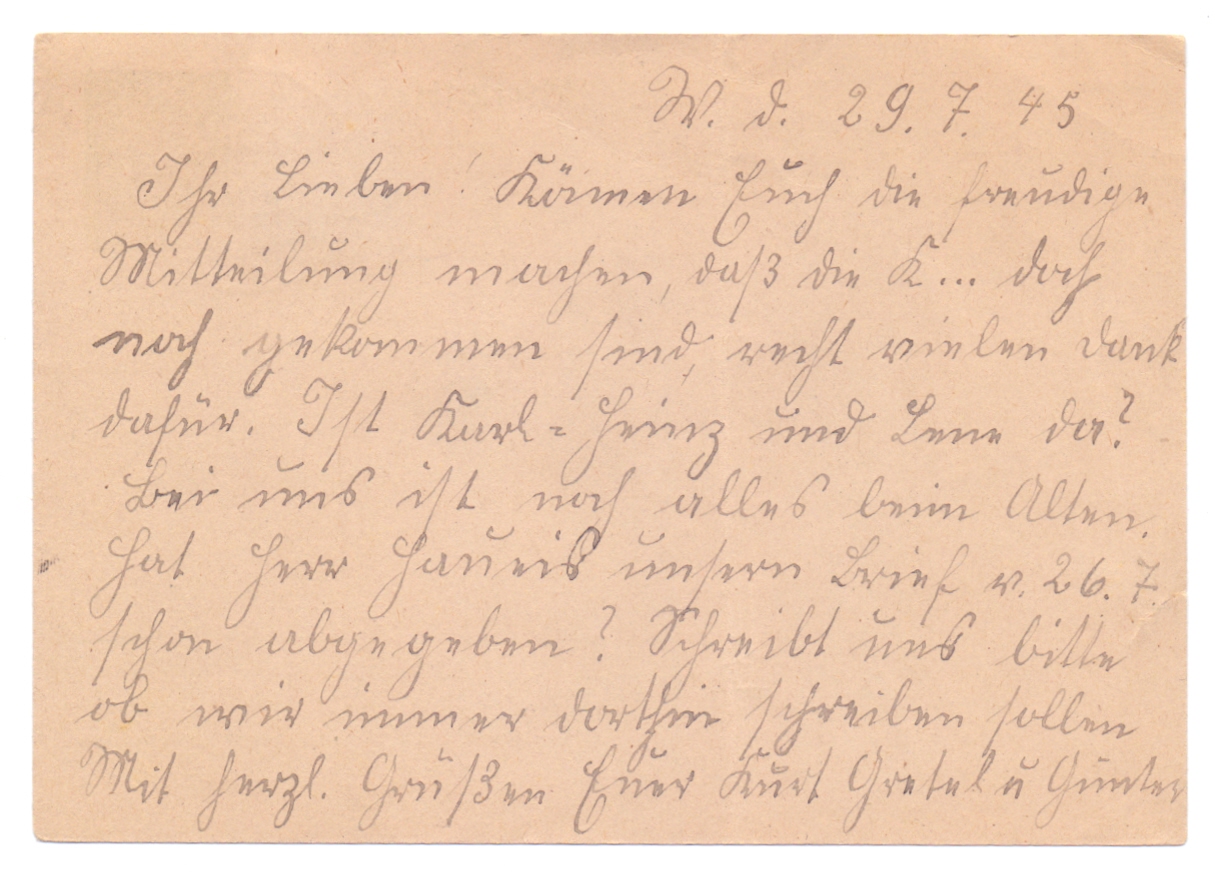 W. d. 29. 7. 45
Ihr Lieben! Können Euch die freudige
Mitteilung machen, daß die K... doch
noch gekommen sind, recht vielen Dank
dafür. Ist Karl-Heinz und Lene da?
Bei uns ist noch alles beim Alten.
Hat Herr Haueis unsern Brief v. 26. 7.
schon abgegeben? Schreibt uns bitte
ob wir immer dorthin schreiben sollen
Mit herzl. Grüßen Euer Kurt Gretel u Günter